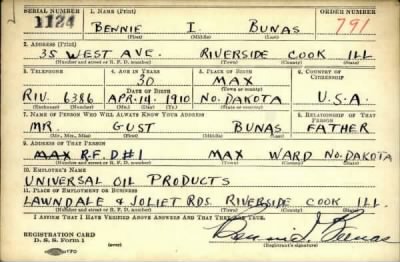 SERIAL NUMBER 1. NAME (Print) ORDER NUMBER
1124 BENNIE I. BUNAS 791
(First) (Middle) (Last)
2. ADDRESS (Print)
35 WEST AVE. RIVERSIDE COOK ILL
(Number and street or R. F. D. number) (Town) (County) (State)
3. TELEPHONE 4. AGE IN YEARS 5. PLACE OF BIRTH 6. COUNTRY OF CITIZENSHIP
30 MAX
DATE OF BIRTH (Town or county)
RIV. 6386 APR. 14. 1910 NO. DAKOTA U.S.A.
(Exchange) (Number) (Mo.) (Day) (Yr.) (State or country)
7. NAME OF PERSON WHO WILL ALWAYS KNOW YOUR ADDRESS 8. RELATIONSHIP OF THAT PERSON
MR. GUST BUNAS FATHER
(Mr., Mrs., Miss) (First) (Middle) (Last)
9. ADDRESS OF THAT PERSON
MAX R.F.D #1 MAX WARD NO. DAKOTA
(Number and street or R. F. D. number) (Town) (County) (State)
10. EMPLOYER'S NAME
UNIVERSAL OIL PRODUCTS
11. PLACE OF EMPLOYMENT OR BUSINESS
LAWNDALE & JOLIET RDS. RIVERSIDE COOK ILL.
(Number and street or R. F. D. number) (Town) (County) (State)
I AFFIRM THAT I HAVE VERIFIED ABOVE ANSWERS AND THAT THEY ARE TRUE.
REGISTRATION CARD
D. S. S. Form 1
(Registrant's signature)